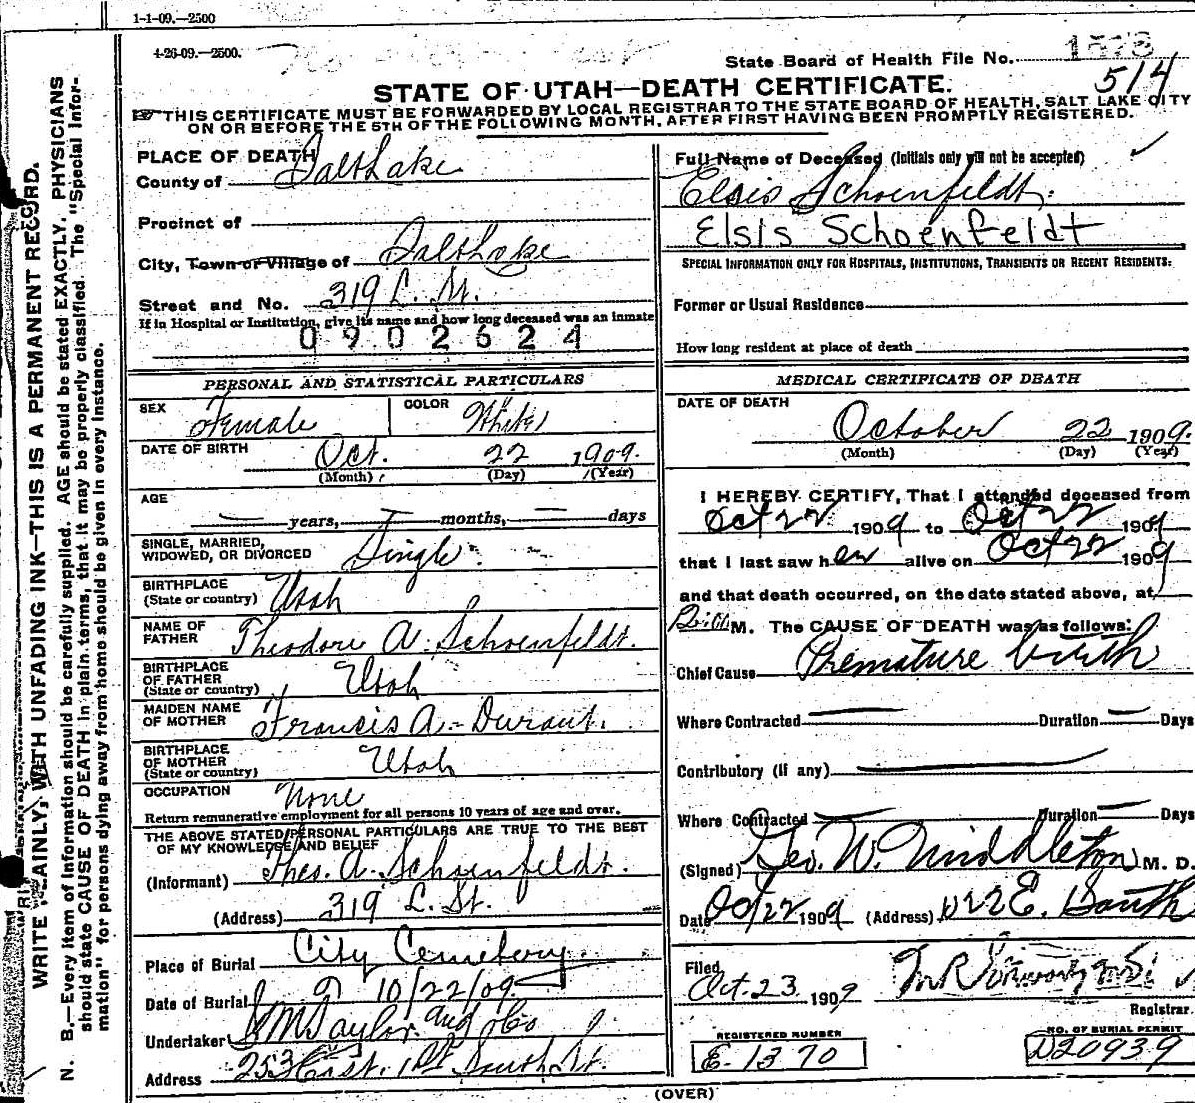 1-1-09.—2500
4-26-09.—2500.
State Board of Health File No. 1573
514
STATE OF UTAH—DEATH CERTIFICATE.
THIS CERTIFICATE MUST BE FORWARDED BY LOCAL REGISTRAR TO THE STATE BOARD OF HEALTH, SALT LAKE CITY
ON OR BEFORE THE 5TH OF THE FOLLOWING MONTH, AFTER FIRST HAVING BEEN PROMPTLY REGISTERED.
WRITE PLAINLY, WITH UNFADING INK—THIS IS A PERMANENT RECORD.
N. B.—Every item of Information should be carefully supplied. AGE should be stated EXACTLY. PHYSICIANS
should state CAUSE OF DEATH in plain terms, that it may be properly classified. The "Special Infor-
mation" for persons dying away from home should be given in every instance.
PLACE OF DEATH
County of Salt Lake
Precinct of
City, Town or Village of Salt Lake
Street and No. 319 L. St.
If in Hospital or Institution, give its name and how long deceased was an inmate
0902624
PERSONAL AND STATISTICAL PARTICULARS
SEX Female COLOR White
DATE OF BIRTH Oct. 22 1909.
(Month) (Day) (Year)
AGE
— years, — months, — days
SINGLE, MARRIED,
WIDOWED, OR DIVORCED Single.
BIRTHPLACE
(State or country) Utah
NAME OF
FATHER Theodore A. Schoenfeldt.
BIRTHPLACE
OF FATHER
(State or country) Utah
MAIDEN NAME
OF MOTHER Francis A. Durant.
BIRTHPLACE
OF MOTHER
(State or country) Utah
OCCUPATION None
Return remunerative employment for all persons 10 years of age and over.
THE ABOVE STATED PERSONAL PARTICULARS ARE TRUE TO THE BEST
OF MY KNOWLEDGE AND BELIEF
(Informant) Theo. A. Schoenfeldt.
(Address) 319 L. St.
Place of Burial City Cemetery.
Date of Burial 10/22/09
Undertaker Taylor
Address 253 East. 1st South St.
Full Name of Deceased (Initials only will not be accepted)
Elsis Schoenfeldt.
Elsis Schoenfeldt
SPECIAL INFORMATION ONLY FOR HOSPITALS, INSTITUTIONS, TRANSIENTS OR RECENT RESIDENTS.
Former or Usual Residence
How long resident at place of death
MEDICAL CERTIFICATE OF DEATH
DATE OF DEATH
October 22 1909.
(Month) (Day) (Year)
I HEREBY CERTIFY, That I attended deceased from
Oct 22 1909 to Oct 22 1909
that I last saw her alive on Oct 22 1909
and that death occurred, on the date stated above, at
M. The CAUSE OF DEATH was as follows:
Chief Cause Premature birth
Where Contracted — Duration — Days
Contributory (if any)
Where Contracted — Duration — Days
(Signed) Geo. W. Middleton M. D.
Date Oct 22 1909 (Address) E. South
Filed
Oct. 23 1909
Registrar.
REGISTERED NUMBER
E-1370
NO. OF BURIAL PERMIT
D20939
(OVER)